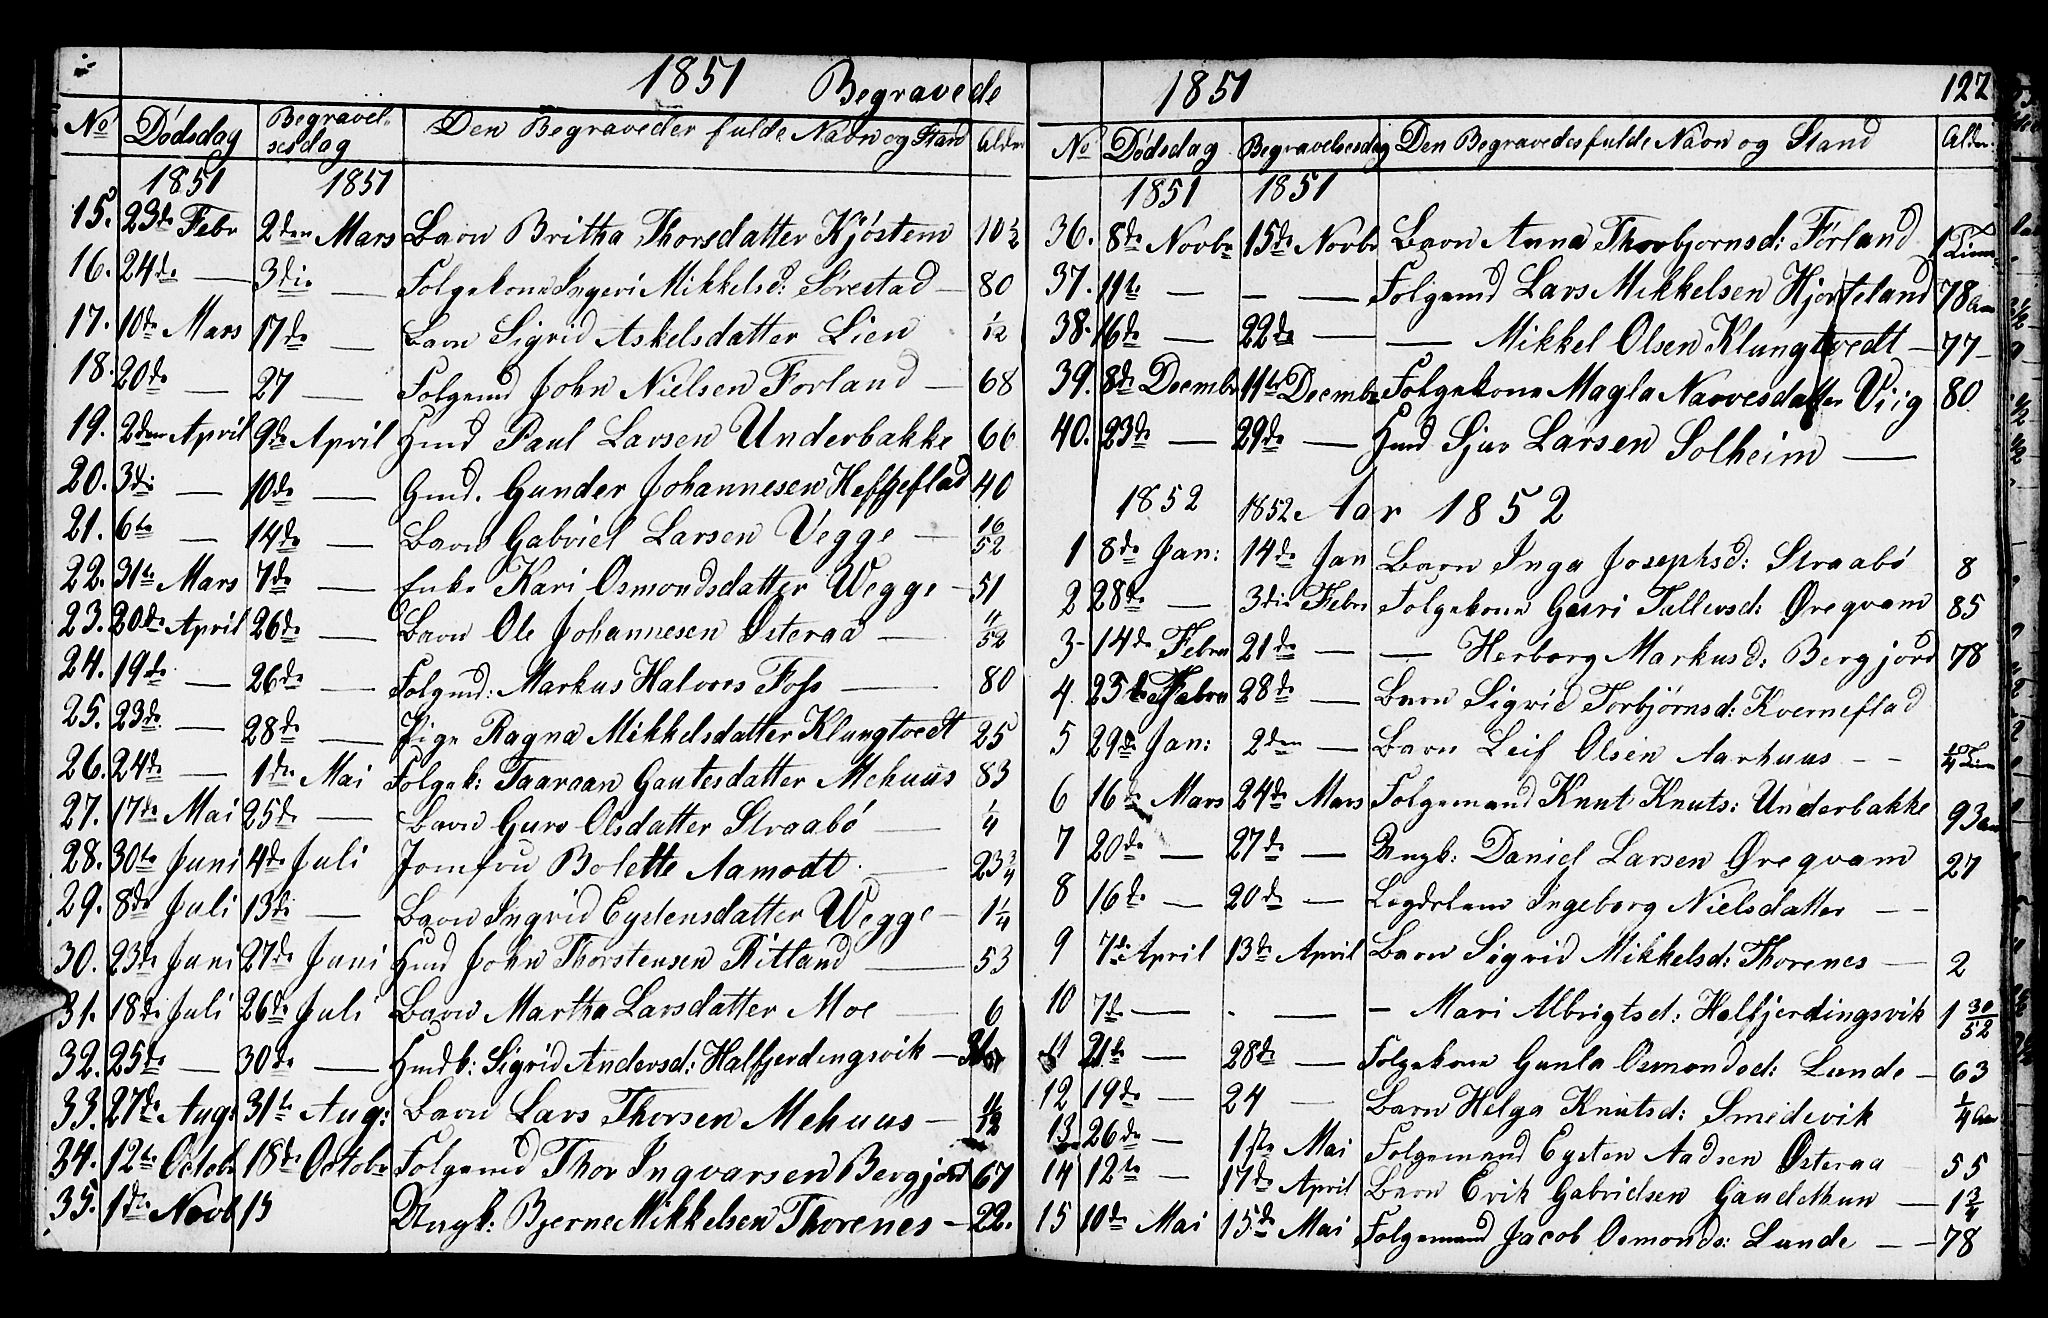 1851 Begravede
No Dödsdag Begravel- Den Begraveder fulde Navn og Stand Alder
sesdag
1851 1851
15. 23de Febr 2den Mars Barn Britha Thorsdatter Kjöstem 10 1/2
16. 24de — 3die — Folgekone Ingeri Mikkelsd: Sörestad — 80
17. 10de Mars 17de — Barn Sigrid Askelsdatter Lien 1/12
18. 20de — 27 — Folgemd John Nielsen Forland — 68
19. 2den April 9de April Hmd Paul Larsen Underbakke 66
20. 3die — 10de — Gmd. Gunder Johannesen Heffteflad 40
21. 6te — 14de — Barn Gabriel Larsen Vegge — 16/52
22. 31te Mars 7de — Enke Kari Osmondsdatter Wegge — 51
23. 20de April 26de — Barn Ole Johannesen Österaa — 11/52
24. 19de — 26de — Folgmd: Markus Halvors Foss — 80
25. 23de — 28de — Pige Ragna Mikkelsdatter Klungtvedt 25
26. 24de — 1ste Mai Folgek: Taaraan Gautesdatter Mehuus 83
27. 17de Mai 25de — Barn Guro Olsdatter Straabö — 1/4
28. 30te Juni 4de Juli Jomfru Bolette Aamodt — 23 3/4
29. 8de Juli 13de — Barn Ingrid Eystensdatter Wegge — 1 1/4
30. 23de Juni 27de Juni Hmd John Thorstensen Ritland — 53
31. 18de Juli 26de Juli Barn Martha Larsdatter Moe — 6
32. 25de — 30de — Hmdk: Sigrid Andersd: Halfjerdingsvik —
33. 27de Aug: 31te Aug: Barn Lars Thorsen Mehuus — 11/12
34. 12te Octob 18de Octobr Folgemd Thor Ingvarsen Bergjord 67
35. 1ste Novb 15 Ungk: Bjerne Mikkelsen Thorenes — 22.
1851 127
No Dödsdag Begravelsesdag Den Begravedes fulde Navn og Stand Alder
1851 1851
36. 8de Novbr 15de Novbr Barn Anna Thorbjornsd: Förland 1 Time
37. 11te — — — Folgemd Lars Mikkelsen Hjorteland 78 Aar
38. 16de — 22de — — Mikkel Olsen Klungtvedt — 77 —
39. 8de Decembr 11te Decembr Folgekone Magla Narvesdatter Viig 80
40. 23de — 29de — Hmd Sjur Larsen Solheim —
1852 1852 Aar 1852
1 8de Jan: 14de Jan Barn Inga Josephsd: Straabö 8
2 28de — 3die Febr Folgekone Guri Tallevsd: Øreqvam 85
3 - 14de Febru 21de — — Herborg Markusd: Bergjord 78
4 25de Febru 28de — Barn Sigrid Torbjörnsd: Kverneflad
5 29de Jan: 2den — Barn Leif Olsen Aarhuus — — 1/4 Time
6 16de Mars 24de Mars Folgemand Knut Knuts: Underbakke 93 Aar
7 20de — 27de — Ungk: Daniel Larsen Øreqvam 27
8 16de — 20de — Lægdslem Ingeborg Nielsdatter — —
9 7de April 13de April Barn Sigrid Mikkelsd: Thorenes — 2
10 7de — - — — Mari Albrigtsd: Halfjerdingsvik 1 30/52
11 21te — 28de — Folgekone Gunla Osmondsd: Lunde — 63
12 19de — 24 — Barn Helga Knutsd: Smedevik 1/4 Aar
13 26de — 1ste Mai Folgemand Eysten Aadsen Østeraa — 55
14 12te — 17de April Barn Erik Gabrielsen Gaudethun — 1 3/4
15 10de Mai 15de Mai Folgemand Jacob Osmonds: Lunde — — 78